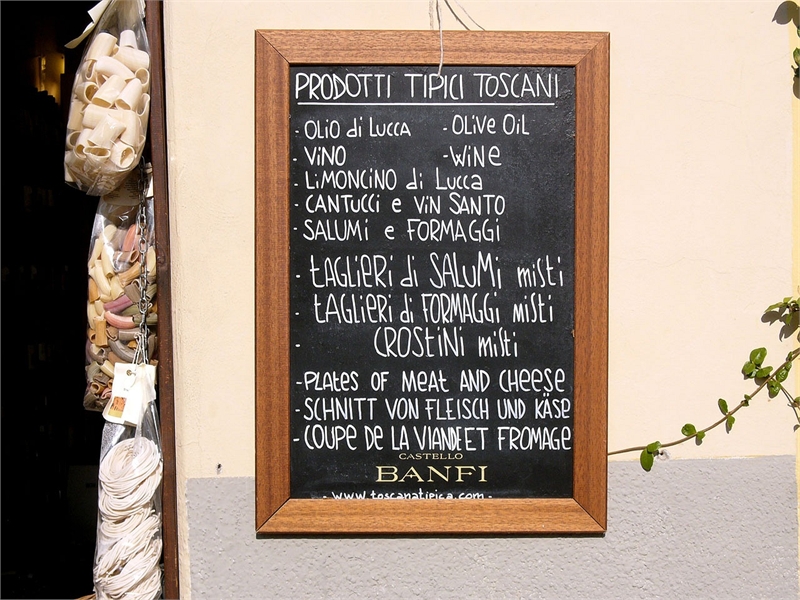 PRODOTTI TIPICI TOSCANI
- OLIO di LUCCA - OLIVE OIL
- ViNO - WiNe
- LiMONCiNO di LUCCA
- CANTUCCI e ViN SANTO
- SALUMi e FORMAGGi
- tAGLiERi di SALUMi misti
- tAGLiERi di FORMAGGi misti
- CROStiNi misti
- PLATES OF MEAT AND CHEESE
- SCHNITT VON FLEISCH UND KÄSE
- COUPE DE LA VIANDE ET FROMAGE
CASTELLO
BANFI
- www.toscanatipica.com -